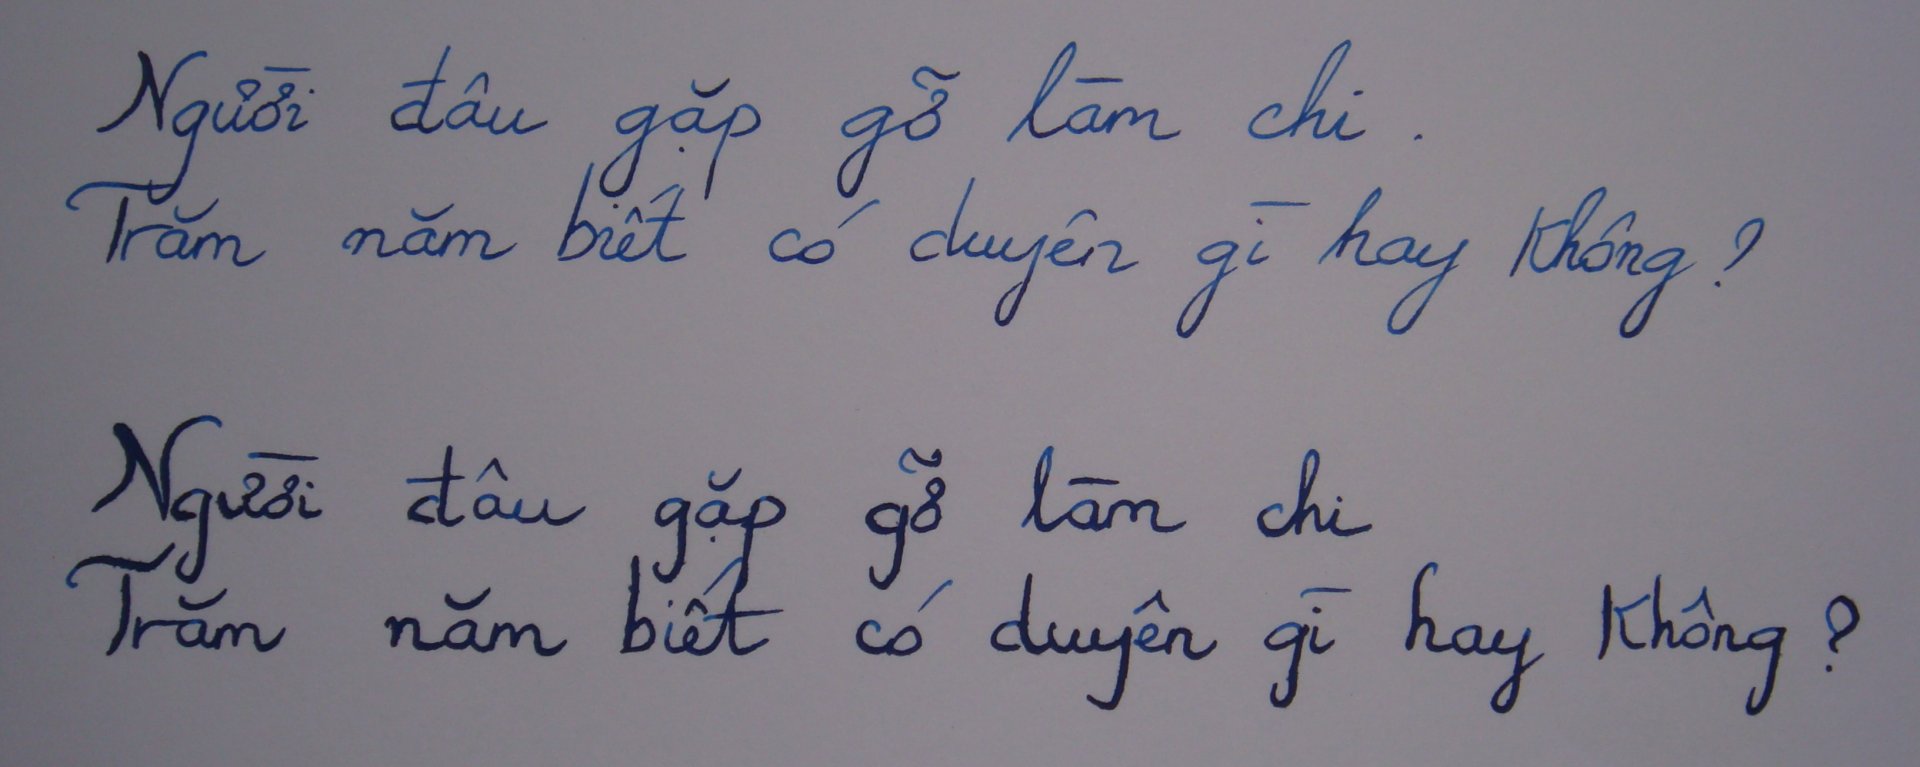 Người đâu gặp gỡ làm chi.
Trăm năm biết có duyên gì hay không?
Người đâu gặp gỡ làm chi
Trăm năm biết có duyên gì hay không?